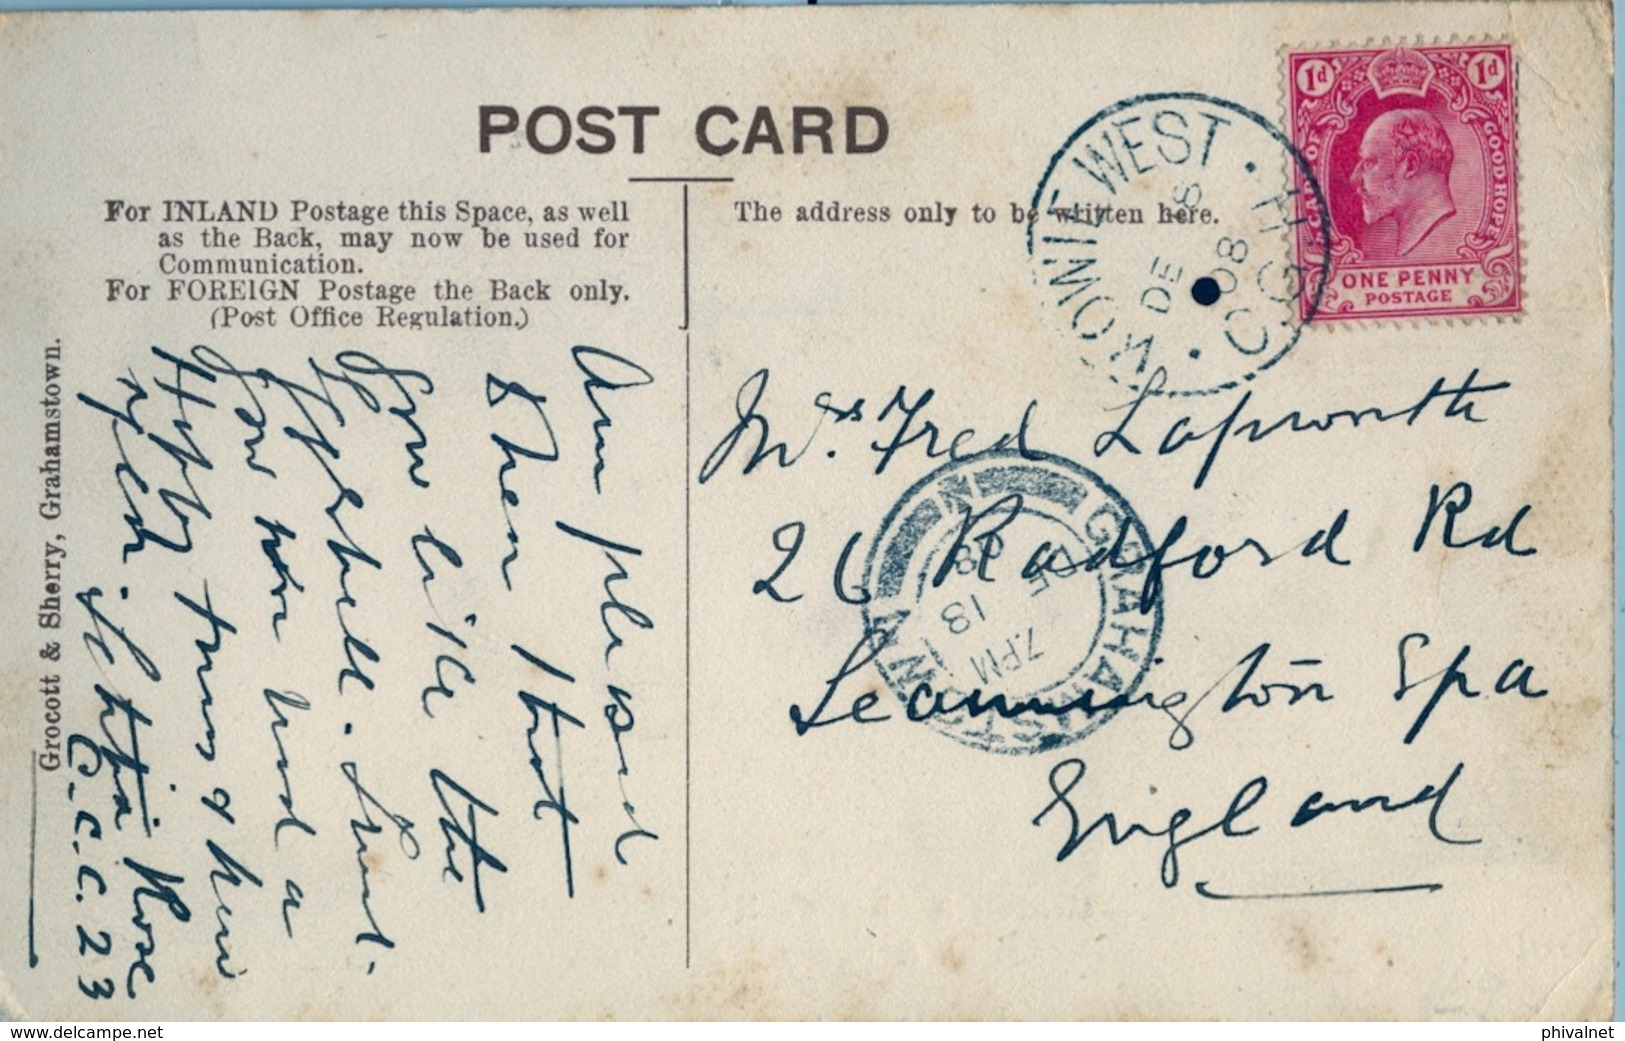 POST CARD
For INLAND Postage this Space, as well
as the Back, may now be used for
Communication.
For FOREIGN Postage the Back only.
(Post Office Regulation.)
The address only to be written here.
Grocott & Sherry, Grahamstown.
KOWIE WEST · C.G.H. ·
DE 8
08
1d 1d
CAPE OF GOOD HOPE
ONE PENNY
POSTAGE
Mrs. Fred Lapworth
26 Radford Rd
Leamington Spa
England
GRAHAMSTOWN
7.PM
DE 13
08
Am pleased
& then
you like the
you had a
Happy &
year. Rose
C.C.C. 23
phivalnet
www.delcampe.net